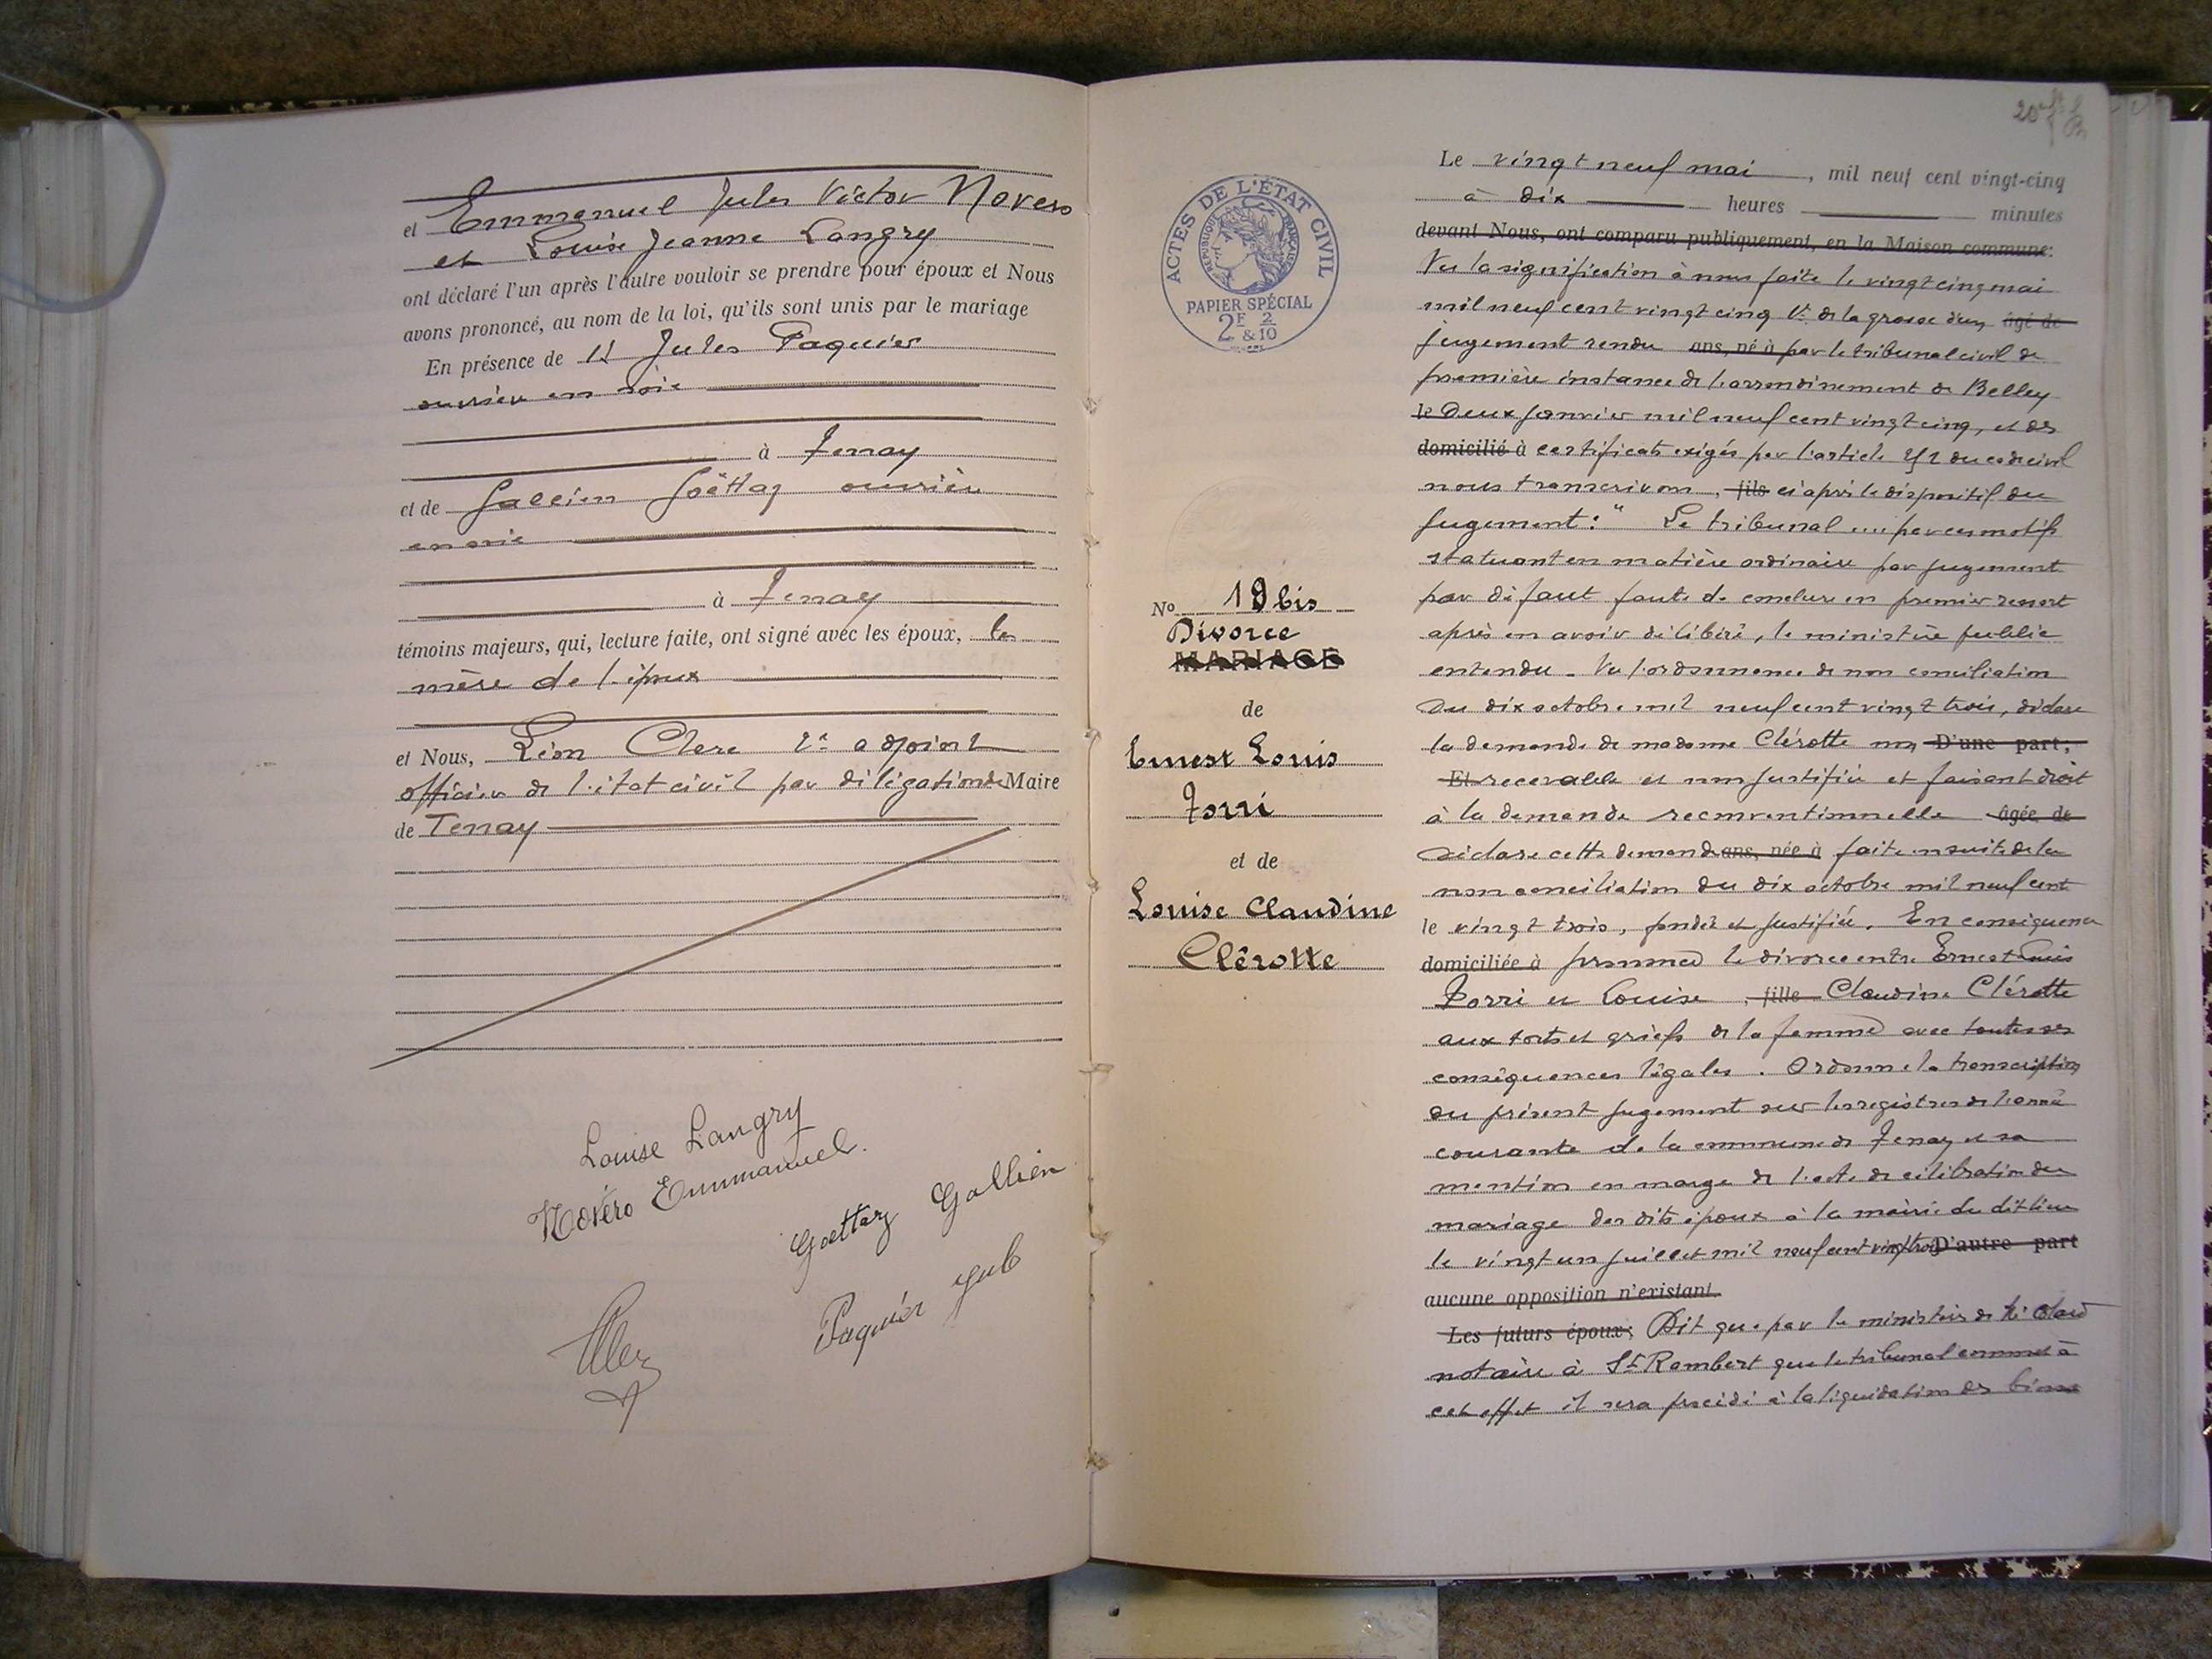 et Emmanuel Jules Victor Novero
et Louise Jeanne Langry
ont déclaré l'un après l'autre vouloir se prendre pour époux et Nous
avons prononcé, au nom de la loi, qu'ils sont unis par le mariage
En présence de Jules Paquier
ouvrier en soie
à Tenay
et de Gallien Goëttaz ouvrier
en soie
à Tenay
témoins majeurs, qui, lecture faite, ont signé avec les époux, la
mère de l'époux
et Nous, Léon Clerc 2e adjoint
officier de l'état civil par délégation du Maire
de Tenay
Louise Langry
Novéro Emmanuel.
Goettaz Gallien
Paquier Jules
ACTES DE L'ÉTAT CIVIL
RÉPUBLIQUE FRANÇAISE
PAPIER SPÉCIAL
2F & 2/10
No 19 bis
Divorce
MARIAGE
de
Ernest Louis
Torri
et de
Louise Claudine
Clérotte
Le vingt neuf mai, mil neuf cent vingt-cinq
à dix heures minutes
devant Nous, ont comparu publiquement, en la Maison commune:
Vu la signification à nous faite le vingt cinq mai
mil neuf cent vingt cinq de la grosse d'un âgé de
jugement rendu ans, né à par le tribunal civil de
première instance de l'arrondissement de Belley
le deux janvier mil neuf cent vingt cinq, et des
domicilié à certificats exigés par l'article 252 du code civil
nous transcrivons, fils ci après le dispositif du
jugement: " Le tribunal .... par ces motifs
statuant en matière ordinaire par jugement
par défaut faute de conclure en premier ressort
après en avoir délibéré, le ministère public
entendu. Vu l'ordonnance de non conciliation
du dix octobre mil neuf cent vingt trois, déclare
la demande de madame Clérotte non D'une part;
Et recevable et non justifiée et faisant droit
à la demande reconventionnelle âgée de
déclare cette demande ans, née à faite ensuite de la
non conciliation du dix octobre mil neuf cent
le vingt trois, fondée et justifiée. En conséquence
domiciliée à prononce le divorce entre Ernest Louis
Torri et Louise, fille Claudine Clérotte
aux torts et griefs de la femme avec toutes ses
conséquences légales. Ordonne la transcription
du présent jugement sur les registres de l'année
courante de la commune de Tenay et sa
mention en marge de l'acte de célébration du
mariage des dits époux à la mairie du dit lieu
le vingt un juillet mil neuf cent vingt trois D'autre part
aucune opposition n'existant.
Les futurs époux; Dit que par le ministère de
notaire à St Rambert que le tribunal commet à
cet effet il sera procédé à la liquidation des biens